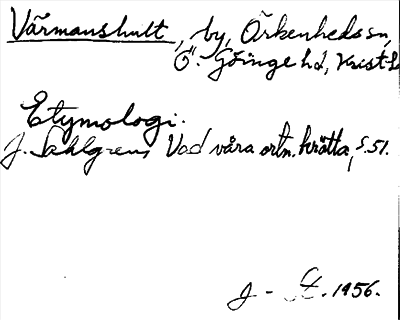 Värmanshult, by, Örkenheds sn,
Ö. Göinge hd, Krist. l.
Etymologi.
J. Sahlgren, Vad våra ortn. berätta, s. 51.
1956.